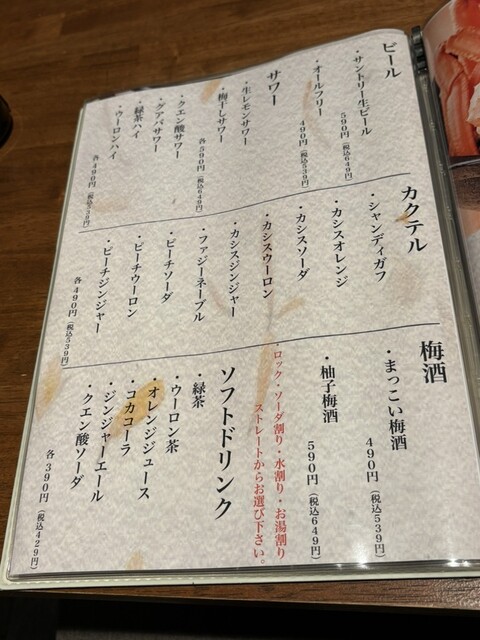 ビール
・サントリー生ビール
590円（税込649円）
・オールフリー
490円（税込539円）
サワー
・生レモンサワー
・梅干しサワー
各590円（税込649円）
・クエン酸サワー
・グアバサワー
・緑茶ハイ
・ウーロンハイ
各490円（税込539円）
カクテル
・シャンディガフ
・カシスオレンジ
・カシスソーダ
・カシスウーロン
・カシスジンジャー
・ファジーネーブル
・ピーチソーダ
・ピーチウーロン
・ピーチジンジャー
各490円（税込539円）
梅酒
・まっこい梅酒
490円（税込539円）
・柚子梅酒
590円（税込649円）
・ロック・ソーダ割り・水割り・お湯割り
ストレートからお選び下さい。
ソフトドリンク
・緑茶
・ウーロン茶
・オレンジジュース
・コカコーラ
・ジンジャーエール
・クエン酸ソーダ
各390円（税込429円）